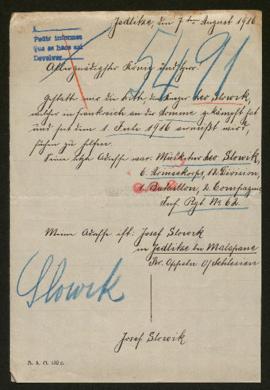 Jedlitze, den 7ten August 1916
Pedir informes
que se hace así
Devolver
5491
Allergnädigster König und Herr.
Gestatte mir die bitte, den Krieger Leo Slowik,
welcher in Frankreich an der Somme gekämpft hat
und seit dem 1. Juli 1916 vermißt wird,
suchen zu helfen.
Seine letzte Adresse war: Musketier Leo Slowik,
6. Armeekorps, 12. Division,
Bataillon, 2. Compagnie
Inf. Rgt. No 62
Meine Adresse ist: Josef Slowik
in Jedlitze bei Malapane
Kr. Oppeln O/Schlesien
Slowik
Josef Slowik